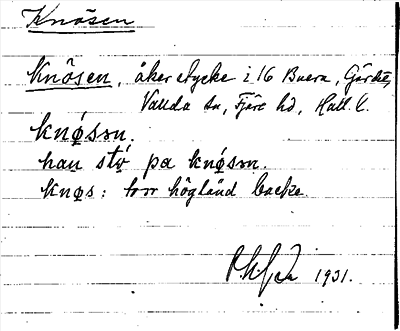 Knösen
Knösen, åkerstycke i 16 Buera,
Vallda sn, Fjäre hd, Hall. l.
knøsən.
han stǫ́ pa knø̀sən.
knøs: torr högländ backe.
1931.